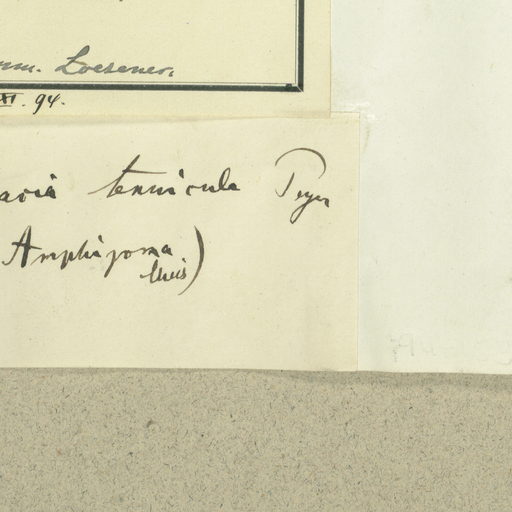 mm. Loesener.
XI. 94.
acia tenuicula Peyr
Amphizoma
Miers)